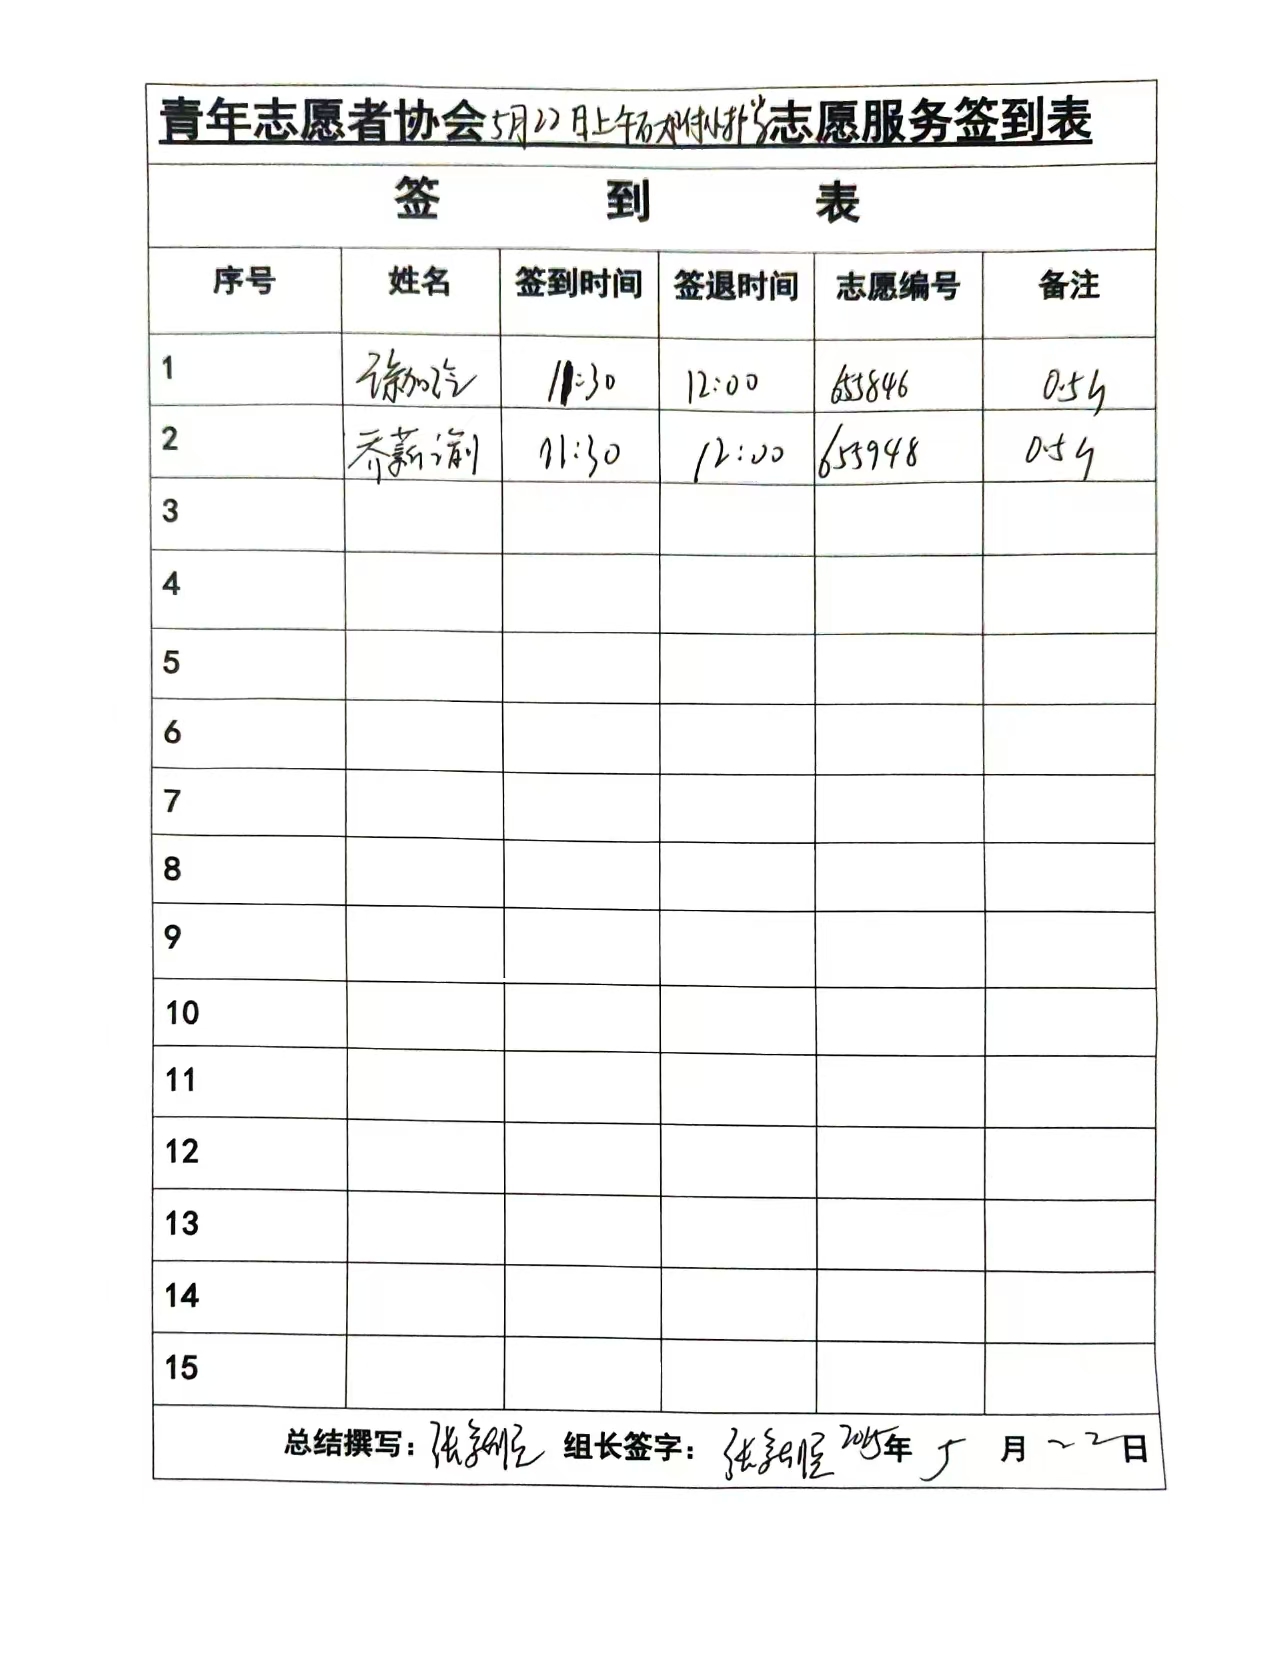 青年志愿者协会5月22日上午石大附小扑学志愿服务签到表
签 到 表
序号 姓名 签到时间 签退时间 志愿编号 备注
1 11:30 12:00 655846 0.5h
2 乔薪渝 11:30 12:00 655948 0.5h
3
4
5
6
7
8
9
10
11
12
13
14
15
总结撰写: 张 组长签字: 张 2015年 5 月 22日